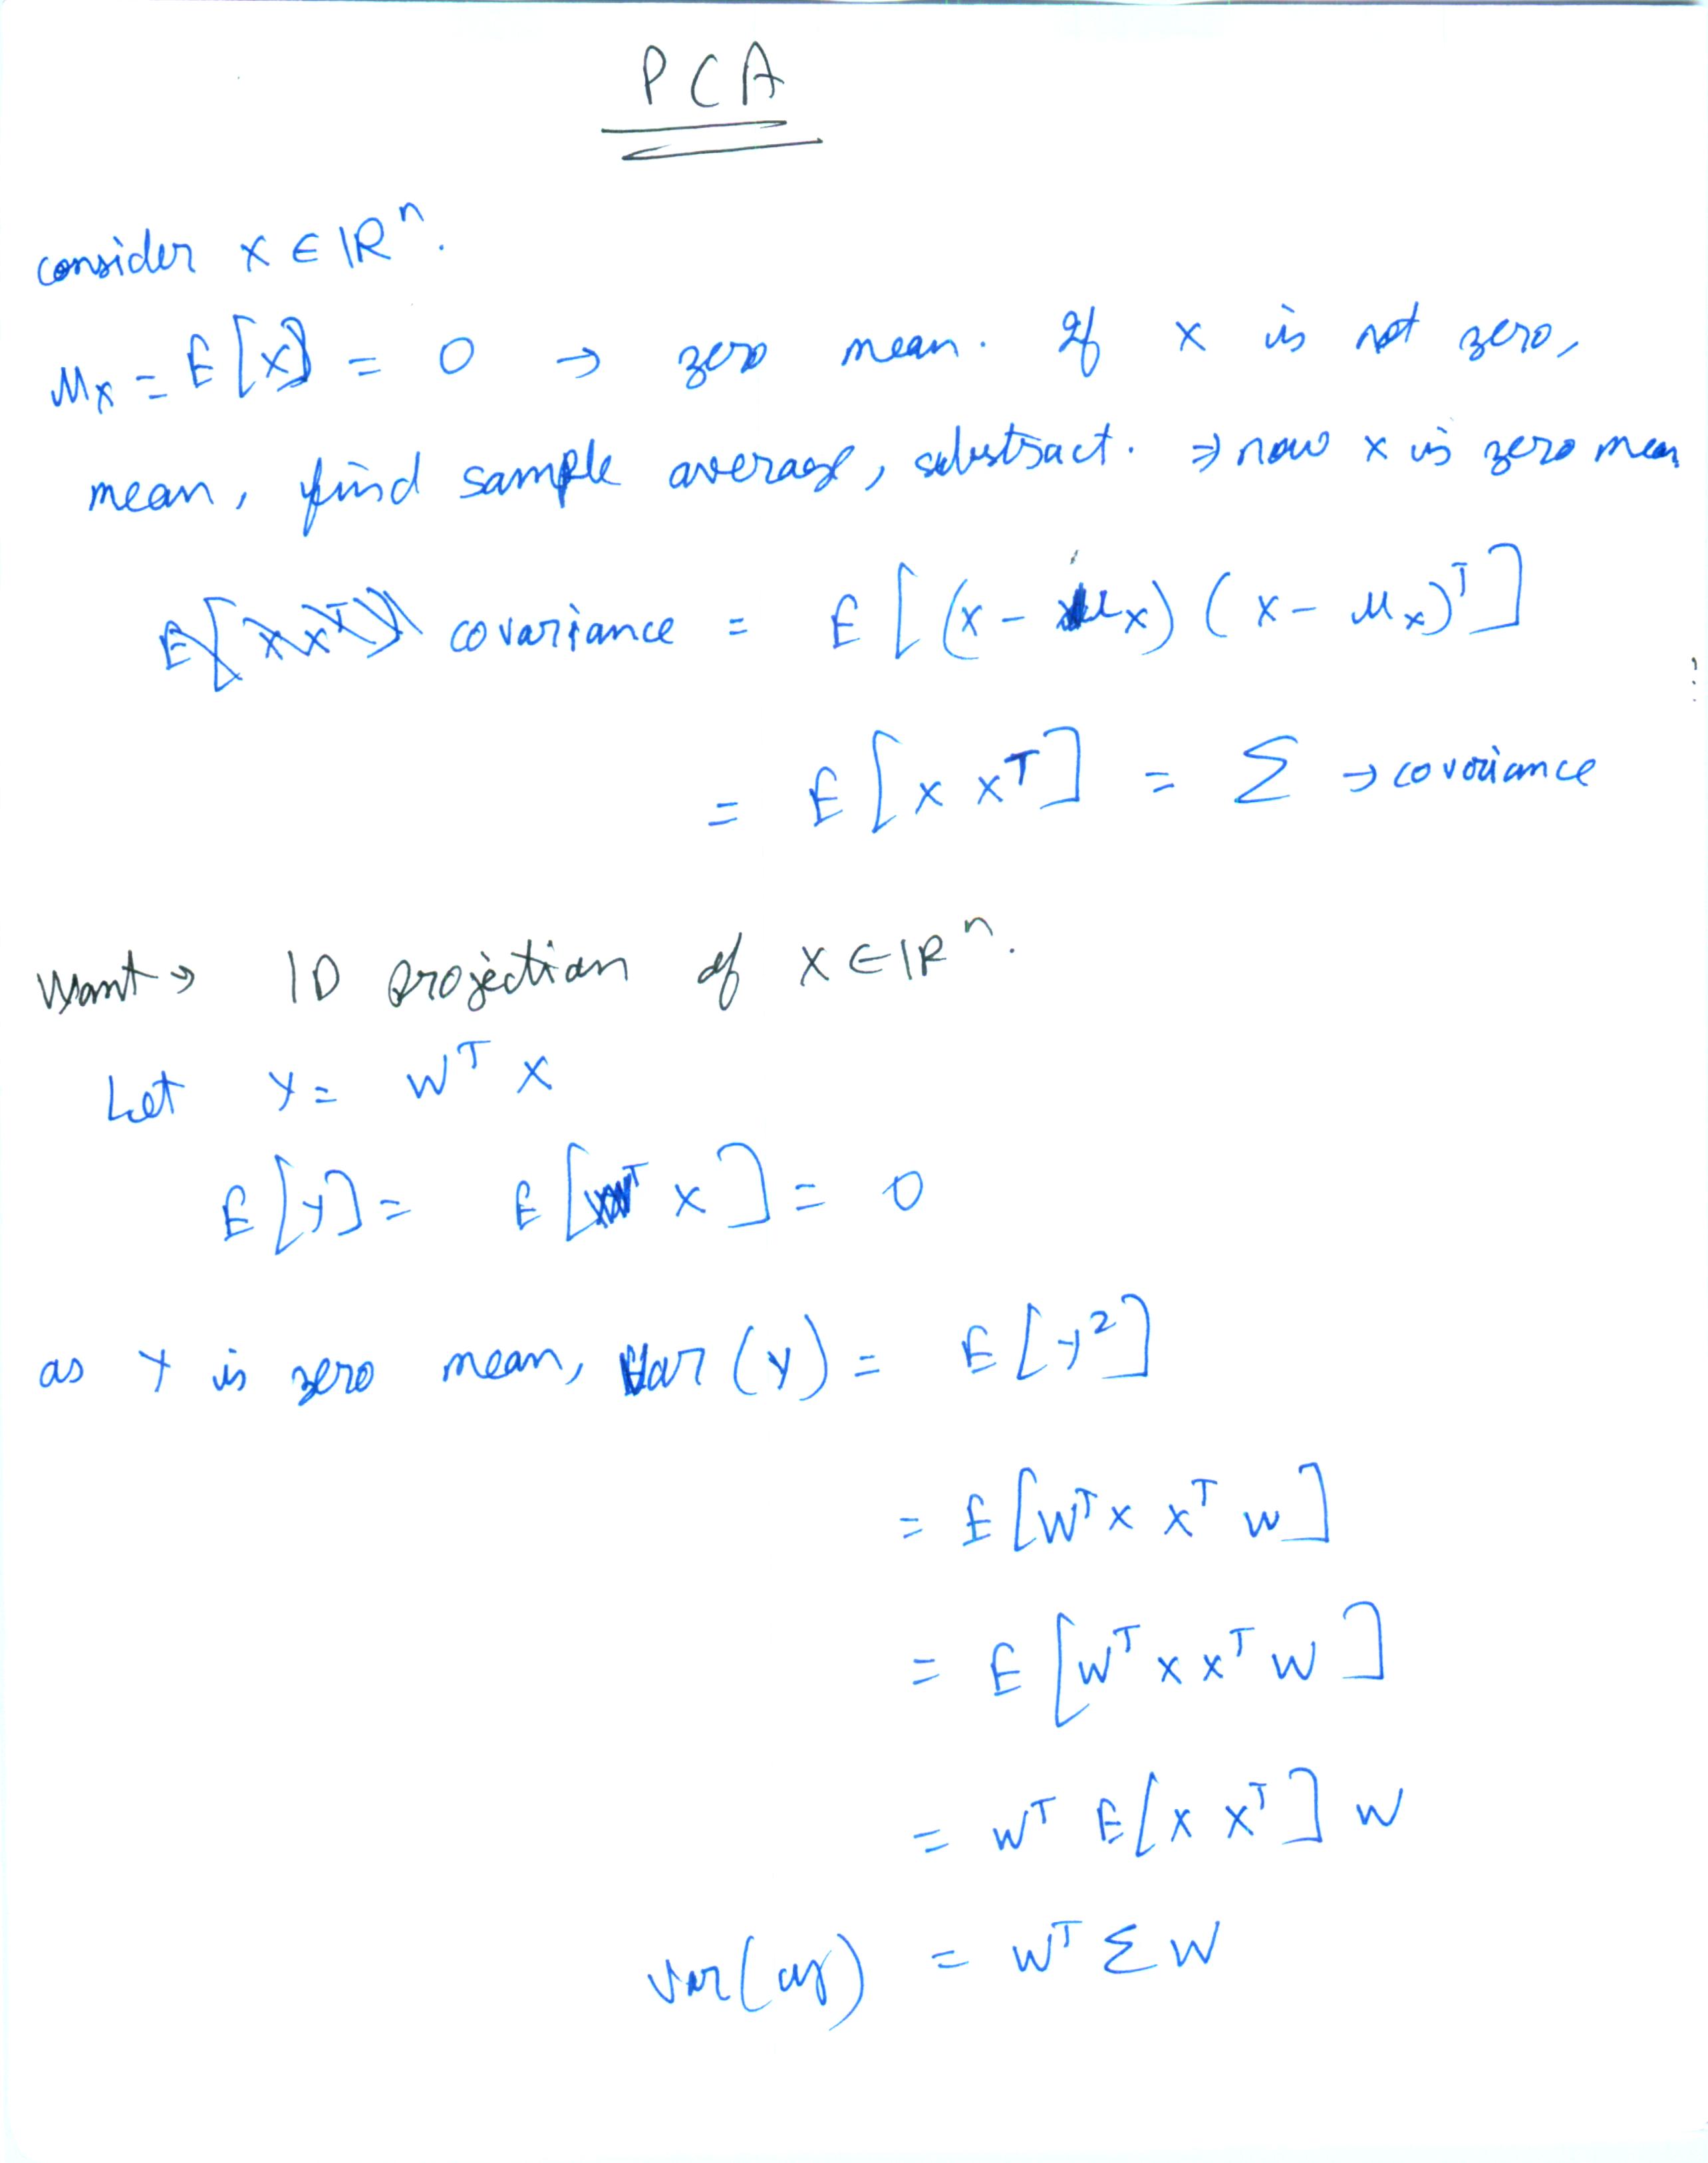 PCA
consider x ∈ ℝⁿ.
μₓ = E[x] = 0 → zero mean. If x is not zero,
mean, find sample average, substract. ⇒ now x is zero mean
covariance = E[(x - μₓ)(x - μₓ)ᵀ]
= E[x xᵀ] = Σ → covariance
Want → 1D projection of x ∈ ℝⁿ.
Let y = wᵀ x
E[y] = E[wᵀ x] = 0
as y is zero mean, Var(y) = E[y²]
= E[wᵀ x xᵀ w]
= E[wᵀ x xᵀ w]
= wᵀ E[x xᵀ] w
Var(y) = wᵀ Σ w